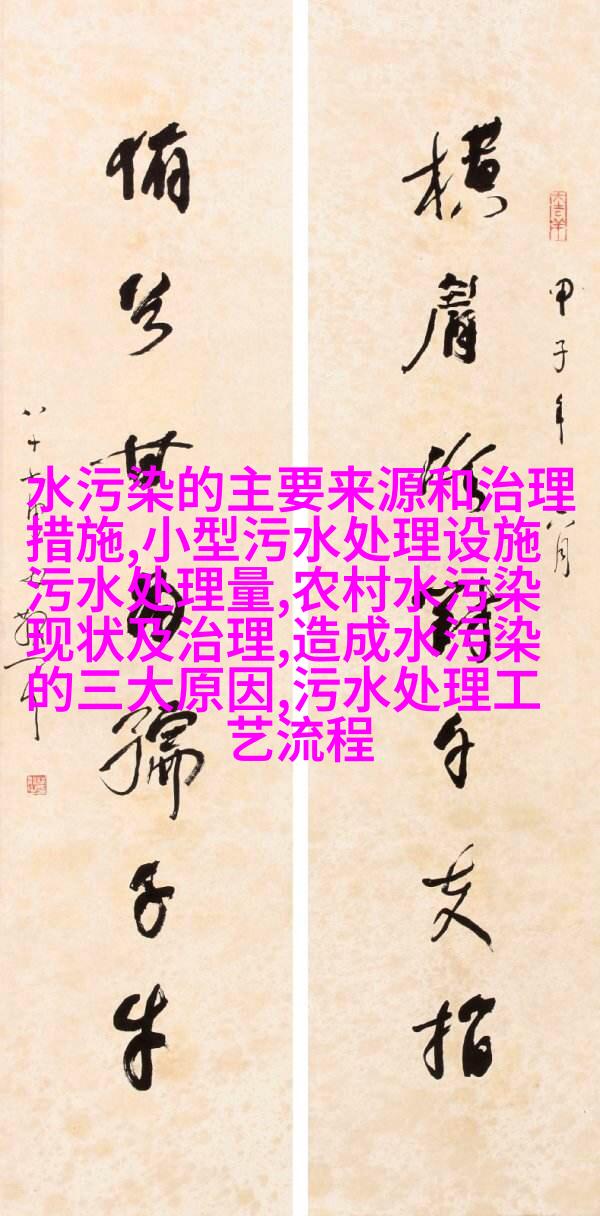 甲子年八月
横眉冷對千夫指
俯首甘為孺子牛
水污染的主要来源和治理
措施,小型污水处理设施
污水处理量,农村水污染
现状及治理,造成水污染
的三大原因,污水处理工
艺流程